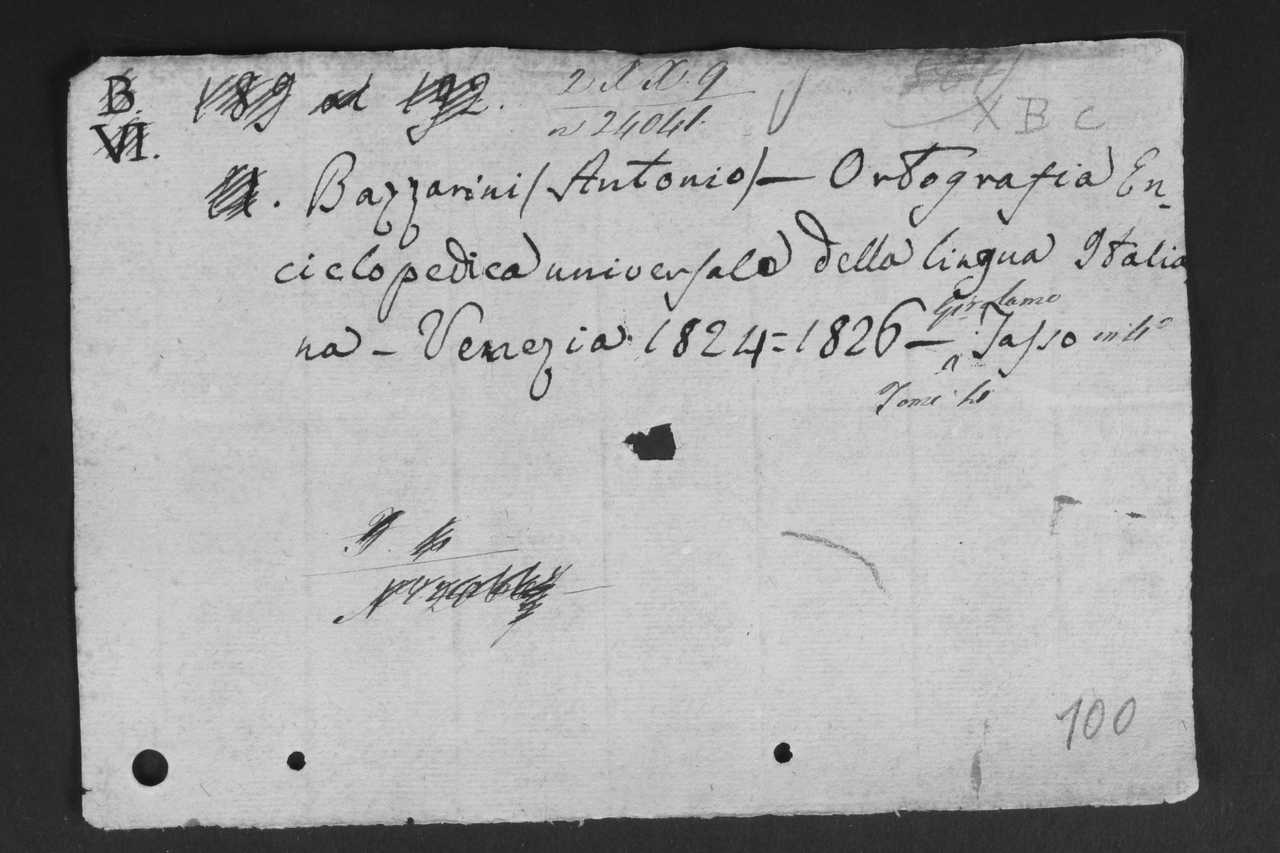 B. 189 ad 192. 2. X. X. 9
VI. n 24041. X B C
Bazzarini (Antonio) — Ortografia En-
ciclopedica universale della lingua Italia
na - Venezia 1824=1826 — Girolamo Tasso in 4°
Tomi
100